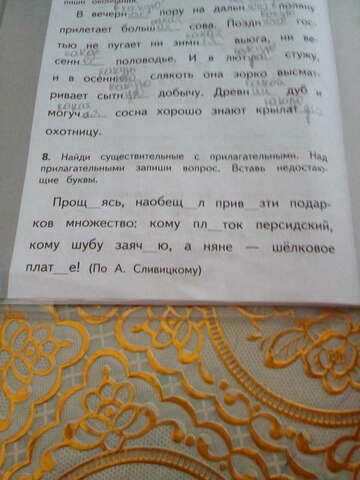 пиши окончания.
В вечерн ю ю пору на дальн ю ю поляну
прилетает больш ая сова. Поздн юю гос-
тью не пугает ни зимн яя вьюга, ни ве-
сенн ее половодье. И в лют ую стужу,
и в осенн юю слякоть она зорко высмат-
ривает сытн ую добычу. Древн ий дуб и
могуч ая сосна хорошо знают крылат ую
охотницу.
8. Найди существительные с прилагательными. Над
прилагательными запиши вопрос. Вставь недостаю-
щие буквы.
Прощ__ясь, наобещ__л прив__зти подар-
ков множество: кому пл__ток персидский,
кому шубу заяч__ю, а няне — шёлковое
плат__е! (По А. Сливицкому)